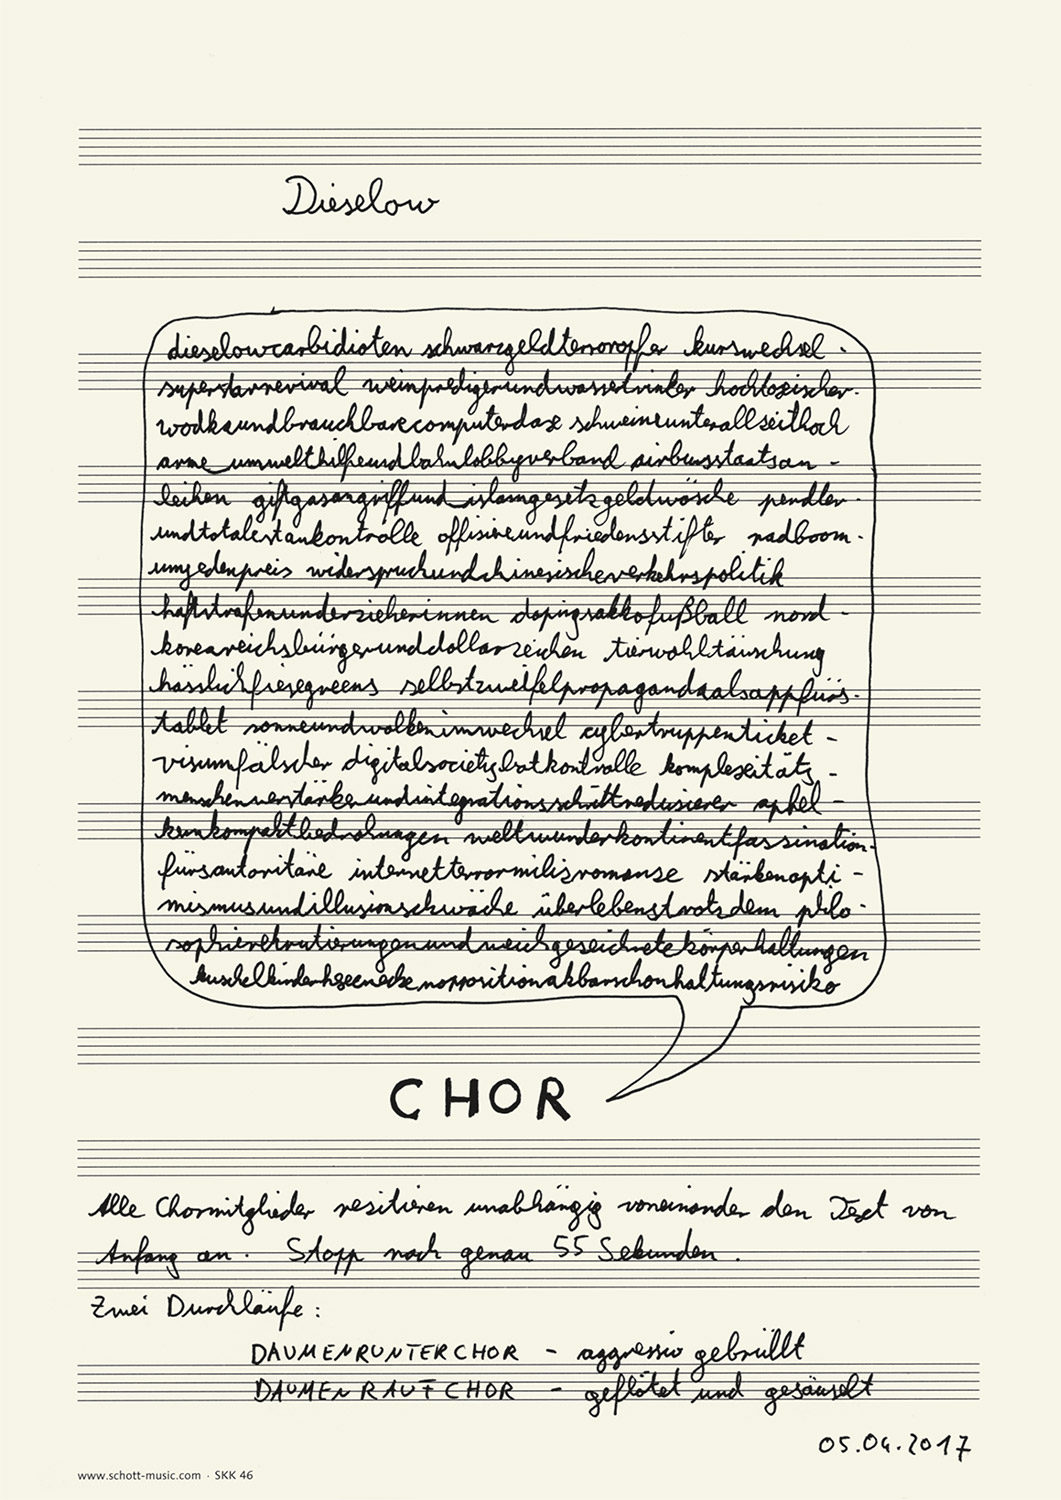 Dieselow
dieselowcarbidioten schwarzgeldterroropfer kurswechsel -
superstarrevival weinpredigerundwassertrinker hochtoxischer-
wodkaundbrauchbarecomputerdaxe schweineunterallzeithoch
arme umwelthilfeundbahnlobbyverband airbusstaatsan -
leihen giftgasangriffund islamgesetzgeldwäsche pendler-
undtotalestaukontrolle offisiveundfriedensstifter radboom-
umjedenpreis widerspruchundchinesischeverkehrspolitik
haftstrafenunderzieherinnen dopingsakkofußball nord -
koreareichsbürgerunddollarzeichen tierwohltäuschung
hässlichfiesegreens selbstzweifelpropagandaalsappfürs-
tablet sonneundwolkenimwechsel cybertruppenticket -
visumfälscher digitalsocietyhatkontrolle komplexitäts -
menschenverstärkerundintegrationsschrittreduzierer apfel -
kernkompaktbedrohungen weltwunderkontinentfaszination-
fürsautoritäre internetterrormilizromanze stärkenopti -
mismusundillusionsschwäche überlebenstrotzdem philo -
sophierekrutierungenundweichgezeichnetekörperhaltungen
oppositionakbarschonhaltungsrisiko
CHOR
Alle Chormitglieder rezitieren unabhängig voneinander den Text von
Anfang an. Stopp nach genau 55 Sekunden.
Zwei Durchläufe:
DAUMENRUNTERCHOR - aggressiv gebrüllt
DAUMENRAUFCHOR - geflötet und gesäuselt
05.04.2017
www.schott-music.com · SKK 46